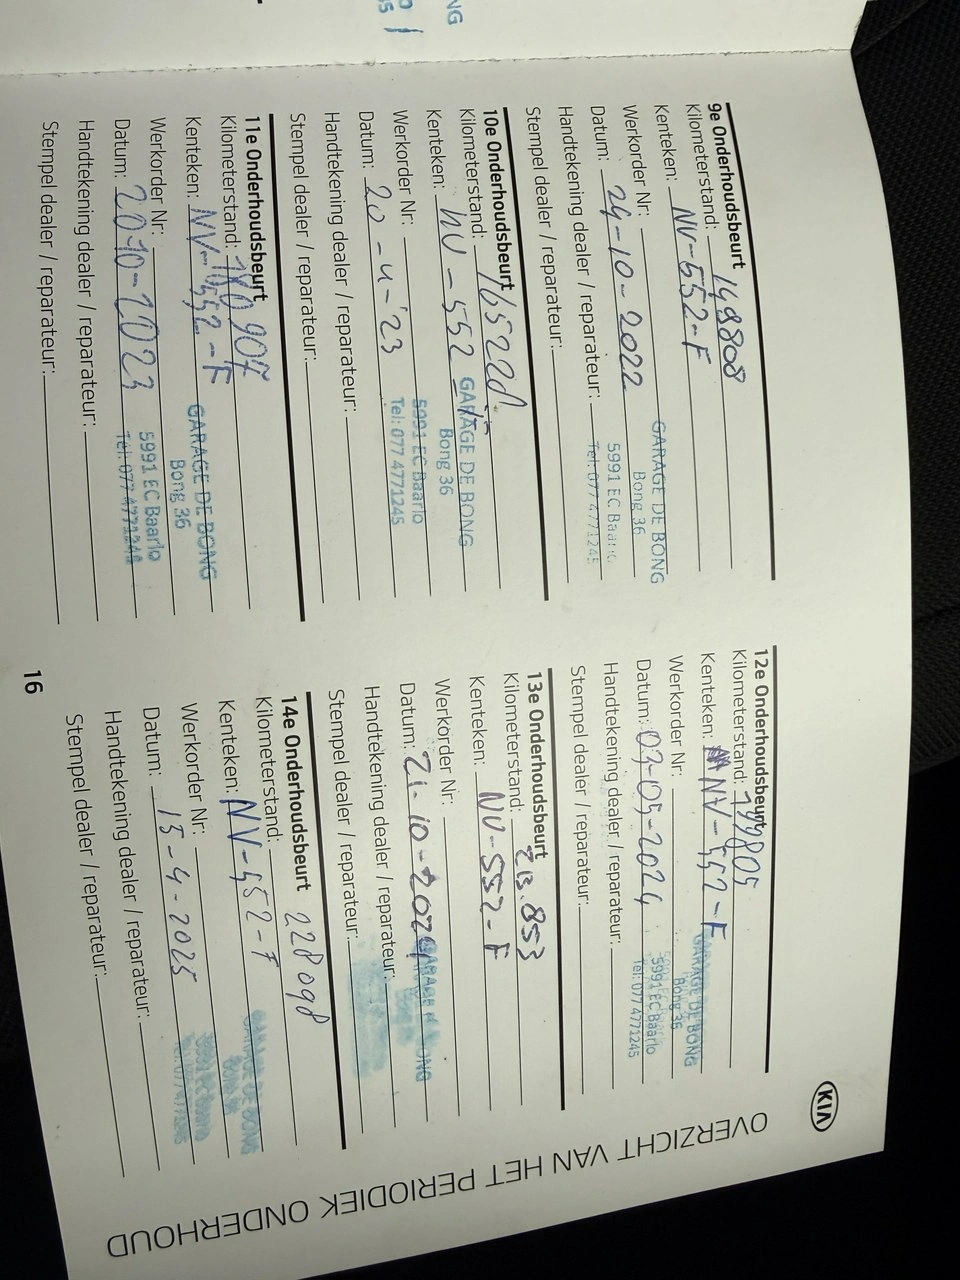 KIA
OVERZICHT VAN HET PERIODIEK ONDERHOUD
9e Onderhoudsbeurt
Kilometerstand: 148808
Kenteken: NV-552-F
Werkorder Nr:
Datum: 24-10-2022
Handtekening dealer / reparateur:
Stempel dealer / reparateur:
GARAGE DE BONG
Bong 36
5991 EC Baarlo
Tel: 077 4771245
10e Onderhoudsbeurt
Kilometerstand:
Kenteken: NV-552-F
Werkorder Nr:
Datum: 20-4-'23
Handtekening dealer / reparateur:
Stempel dealer / reparateur:
GARAGE DE BONG
Bong 36
5991 EC Baarlo
Tel: 077 4771245
11e Onderhoudsbeurt
Kilometerstand: 180907
Kenteken: NV-552-F
Werkorder Nr:
Datum: 20-10-2023
Handtekening dealer / reparateur:
Stempel dealer / reparateur:
GARAGE DE BONG
Bong 36
5991 EC Baarlo
Tel: 077 4771245
12e Onderhoudsbeurt
Kilometerstand: 199805
Kenteken: NV-552-F
Werkorder Nr:
Datum: 03-05-2024
Handtekening dealer / reparateur:
Stempel dealer / reparateur:
GARAGE DE BONG
Bong 36
5991 EC Baarlo
Tel: 077 4771245
13e Onderhoudsbeurt
Kilometerstand: 213.853
Kenteken: NV-552-F
Werkorder Nr:
Datum: 21-10-2024
Handtekening dealer / reparateur:
Stempel dealer / reparateur:
14e Onderhoudsbeurt
Kilometerstand: 228098
Kenteken: NV-552-F
Werkorder Nr:
Datum: 15-4-2025
Handtekening dealer / reparateur:
Stempel dealer / reparateur:
GARAGE DE BONG
16